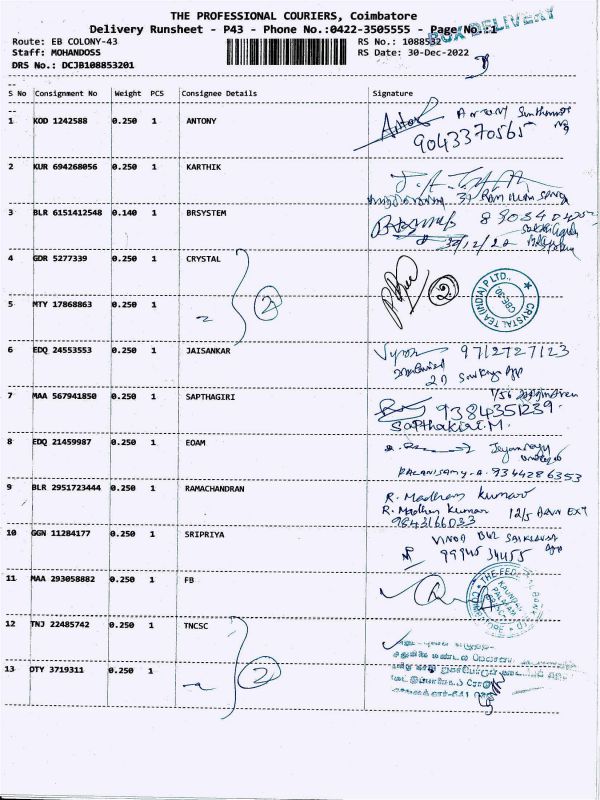 THE PROFESSIONAL COURIERS, Coimbatore
Delivery Runsheet - P43 - Phone No.:0422-3505555 - Page No.:1
BOX DELIVERY
Route: EB COLONY-43 RS No.: 1088532
Staff: MOHANDOSS RS Date: 30-Dec-2022
DRS No.: DCJB108853201
S No Consignment No Weight PCS Consignee Details Signature
1 KOD 1242588 0.250 1 ANTONY
9043370565
2 KUR 694268056 0.250 1 KARTHIK
3 BLR 6151412548 0.140 1 BRSYSTEM
30/12/22
4 GDR 5277339 0.250 1 CRYSTAL
CRYSTAL TEA (INDIA) P LTD., CBE-30
2 2
5 MTY 17868863 0.250 1
6 EDQ 24553553 0.250 1 JAISANKAR
9712727123
7 MAA 567941850 0.250 1 SAPTHAGIRI
9384351239
Sapthakiri.M.
8 EDQ 21459987 0.250 1 EOAM
PALANISAMY.A. 9344286353
9 BLR 2951723444 0.250 1 RAMACHANDRAN
R. Madhan Kumar
R. Madhan Kumar 12/5 ADVN EXT
9843166033
10 GGN 11284177 0.250 1 SRIPRIYA
VINOD
99945 34455
11 MAA 293058882 0.250 1 FB
12 TNJ 22485742 0.250 1 TNCSC
2
13 OTY 3719311 0.250 1